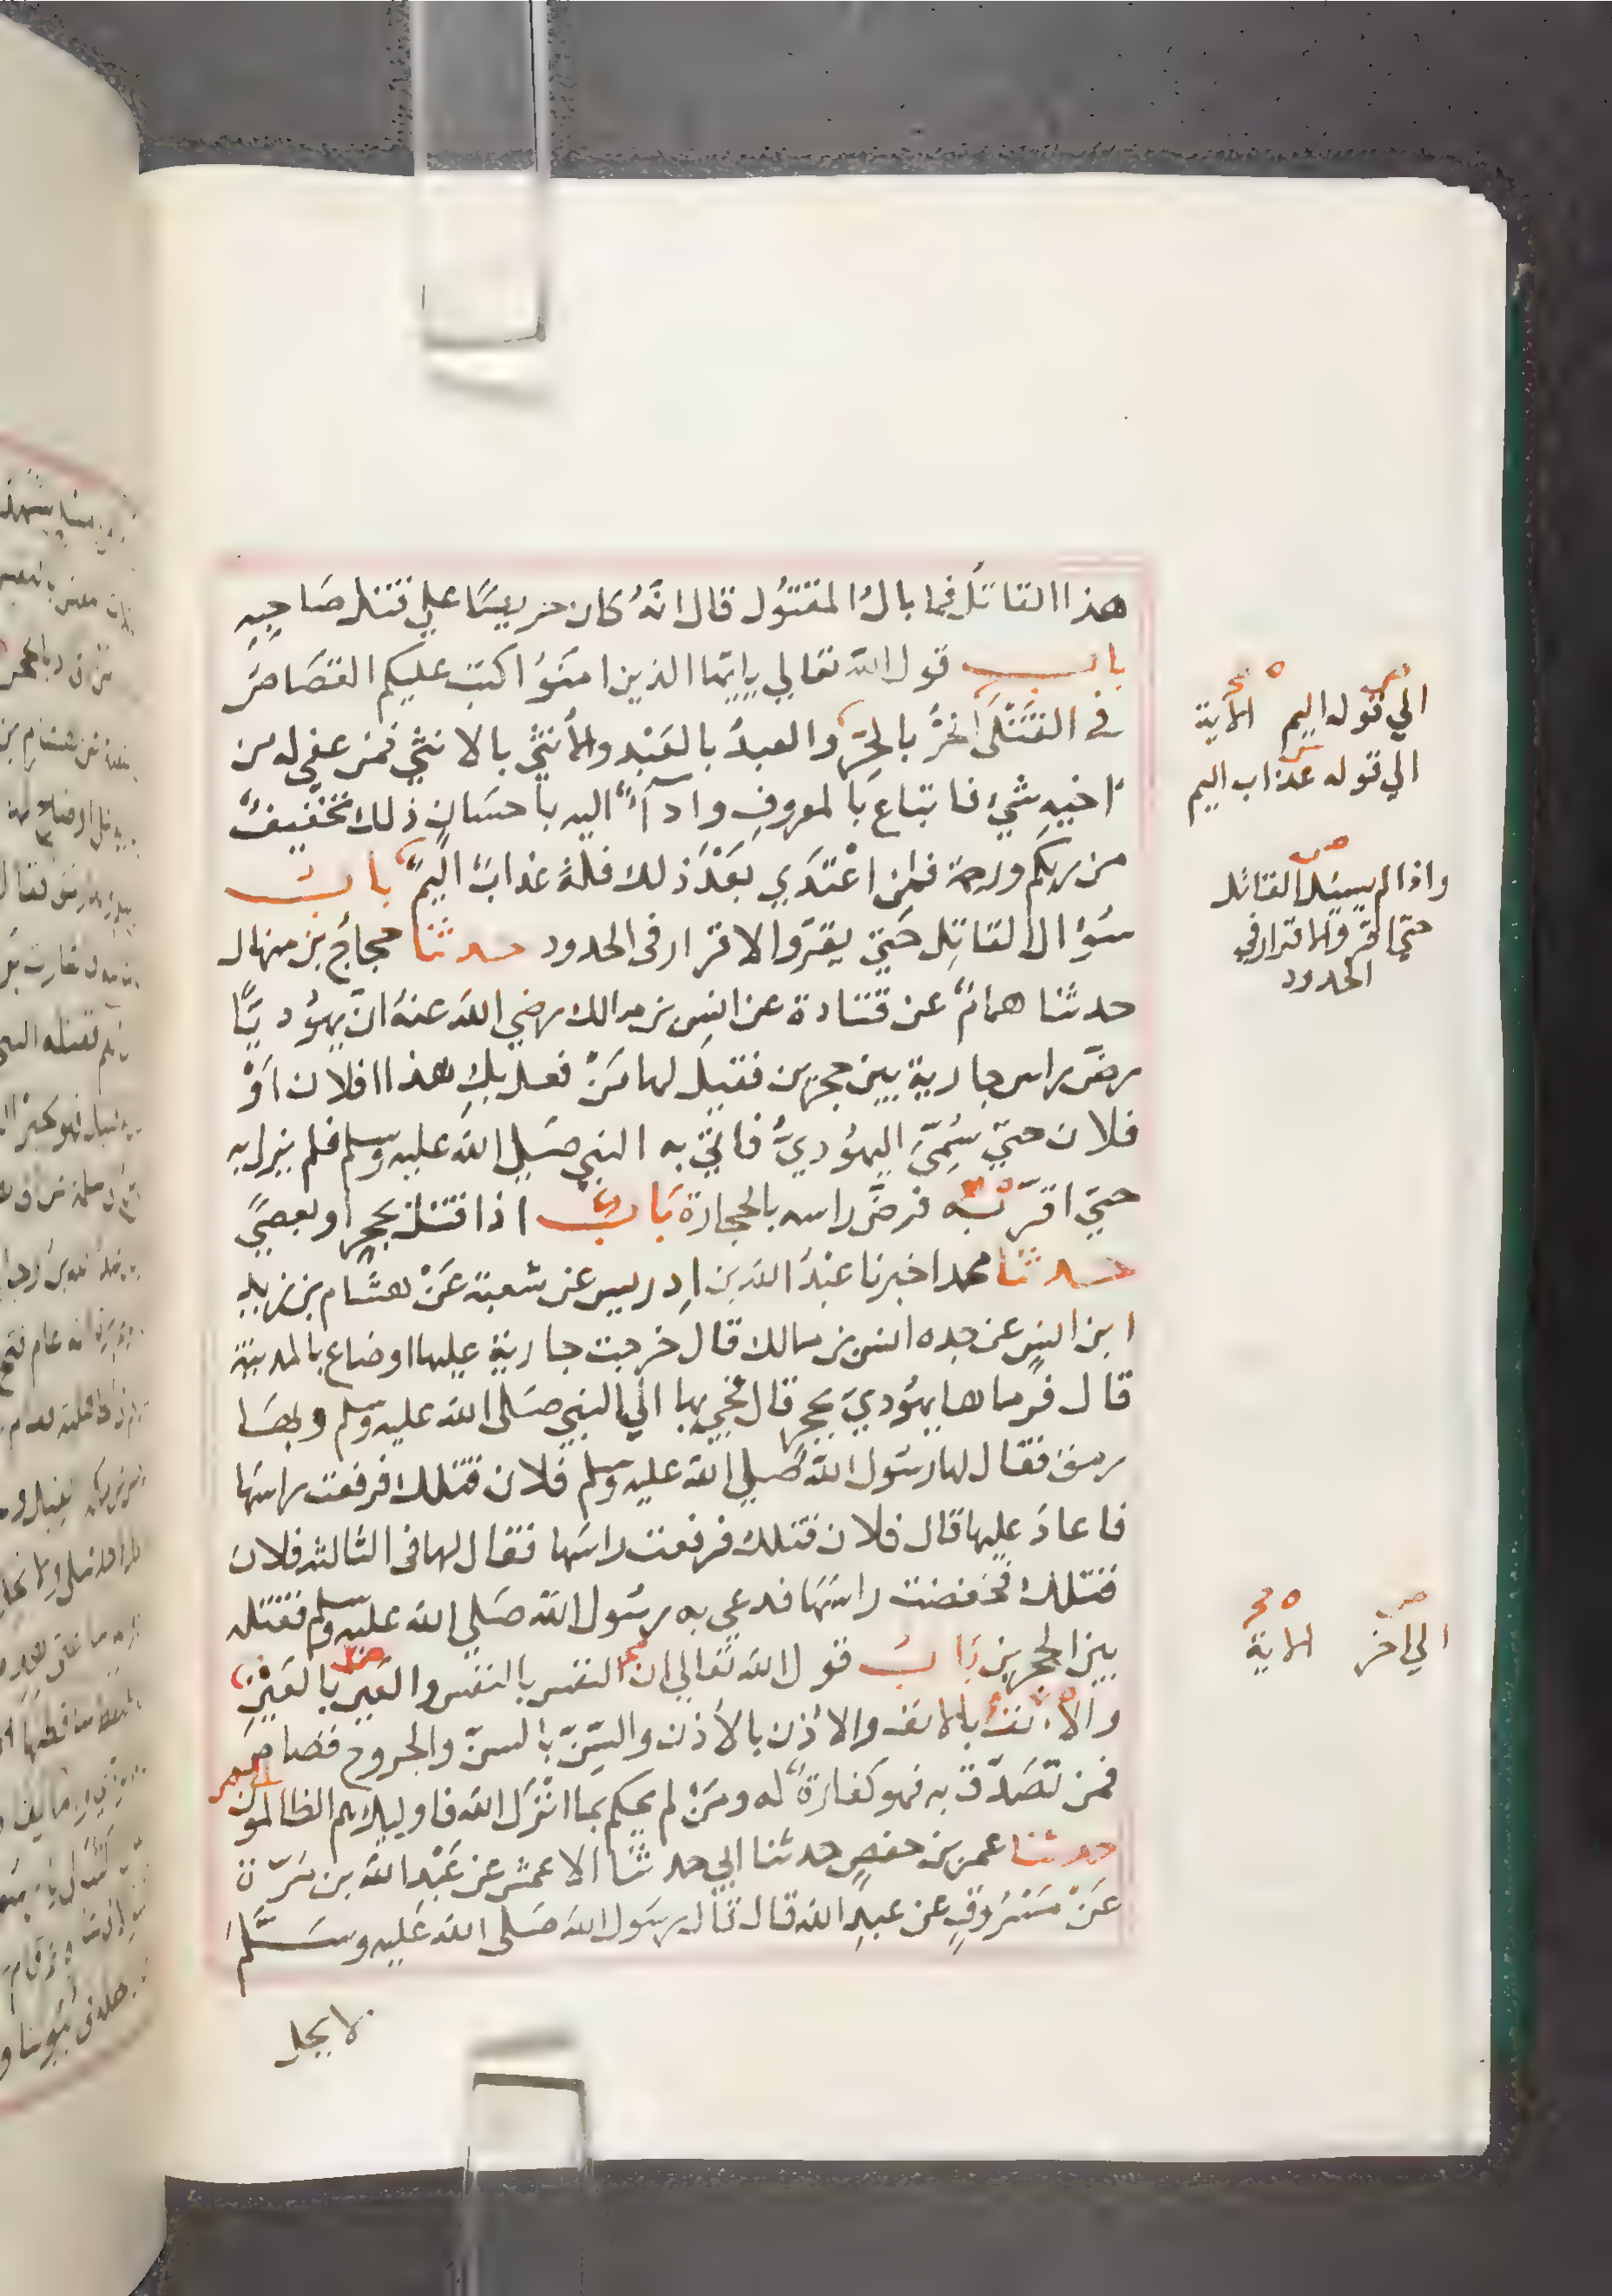 هذا القاتلُ فما بالُ المقتُول قال انّهُ كان حريصًا علي قتل صَاحِبِهِ
باب قول الله تعالي ياايّها الذين امنَوُا كتب عليكم القصَاصُ
في القَتْلَي الحُرُّ بالحِرِّ والعبدُ بالعَبْدِ والأنثي بالانثي فمن عفي له من
اخيهِ شيْ فاتباع بالمعروفِ وادآءٌ اليه باحسَانٍ ذلك تخفيفٌ
من ربكم ورحمة فمن اعْتَدَي بَعْدَ ذلك فلهُ عذابٌ اليمٌ بابُ
سُؤال القاتِل حَتّي يقرّ والاقرار في الحدود حدثنا حجاجُ بن منهال
حدثنا همامٌ عن قتادة عن انسِ بن مالك رضي الله عنهُ انّ يهوُديًّا
رضّ راس جارية بين حجرين فقيلَ لها مَنْ فعل بكِ هذا افلان اَوْ
فلان حتيّ سُمِّيَ اليهوُديُّ فاتيَ به النبي صَلي الله عليه وسلم فلم يزل به
حتيّ اقرّ به فرضَّ راسه بالحجارة بَابُ اذا قتل بحجر او بعصًي
حدثنا محمد اخبرنا عبْدُ الله بن اِدريس عن شعبة عَنْ هشام بن زيد
ابن انسٍ عن جده انس بن مالك قال خرجت جارية عليها اوضاع بالمدينة
قال فرماها يهوُديّ بحجر قال فجي بها الي النبي صَلى الله عليه وسلم وبهَا
رمق فقال لها رسُول الله صَلي الله عليه وسلم فلان قتلك فرفعت راسَهَا
فاعادَ عليها قال فلان قتلك فرفعت راسَها فقال لها في الثالثه فلان
قتلك فخفضت راسَهَا فدعي به رسُول الله صَلي الله عليه وسلم فقتله
بين الحجرين بَابُ قول الله تعَالي ان النفس بالنفس والعَين بالعَيْنِ
والأنفُ بالانف والاُذن بالاُذن والسِّنّ بالسنّ والجروح قصاص
فمن تصَدّقَ به فهو كفارَةٌ له ومَنْ لم يحكم بمَا انزَل الله فاوليك هم الظالمون
حدثنا عمر بن حفصٍ حدثنا ابي حدثنَا الاعمش عن عَبْدِ الله بن مُرّة
عَنْ مَسْرُوقٍ عن عبدِ الله قال قال رسَول الله صَلى الله عَليه وسَلَّمَ
لا يحل
الي قوله اليم الاية
الي قوله عذاب اليم
واذا لم يسئل القاتل
حتي اقر والاقرار في
الحدود
الي اخر الاية